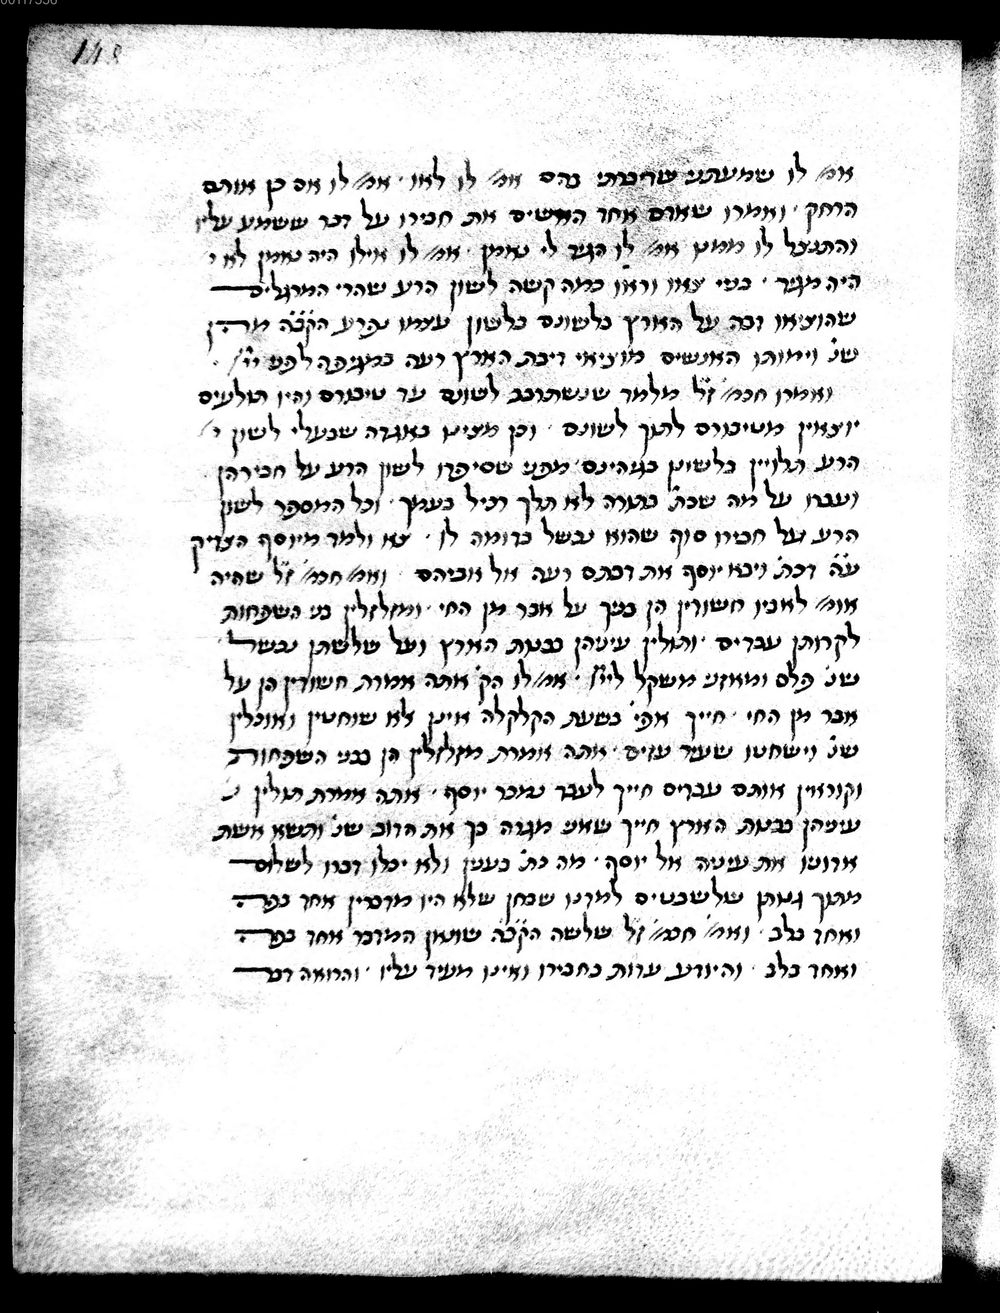 148
אמ' לו שמעתני שדיברתי בהם אמ' לו לאו · אמ' לו אם כן אורם
הרחק · ואמרו שארם אחד האשים את חבירו על דבר ששמע עליו
והתנצל לו ממנו אמ' לו הגיד לי נאמן · אמ' לו אילו היה נאמן לא י
היה מגיד · בני צאו וראו כמה קשה לשון הרע שהרי המרגלים
שהוציאו דבה על הארץ בלשונם בלשון עצמו נפרע הקב"ה מהן
שנ' וימותו האנשים מוציאי דיבת הארץ רעה במגיפה לפני יי' ·
ואמרו חכמ' ז"ל מלמד שנשתרבב לשונם עד טיבורם והיו תולעים
יוצאין מטיבורם לתוך לשונם · וכן מצינו באגדה שבעלי לשון י'
הרע תלויין בלשונן בגיהינם מפני שסיפרו לשון הרע על חביריהן
ועברו על מה שכת' בתורה לא תלך רכיל בעמך · וכל המספר לשון
הרע על חבירו סוף שהוא נכשל בדומה לו · צא ולמד מיוסף הצדיק
ע"ה דכת' ויבא יוסף את דבתם רעה אל אביהם · ואמ' חכמ' ז"ל שהיה
אומ' לאביו חשודין הן בניך על אבר מן החי · ומזלזלין בני השפחות
לקרותן עבדים · ותולין עיניהן בבנות הארץ ועל שלשתן נכשל ·
שנ' פלס ומאזני משקל ליי' · אמ' לו הק' אתה אמרת חשודין הן על
אבר מן החי · חייך אפי' בשעת הקלקלה אינן לא שוחטין ואוכלין
שנ' וישחטו שעיר עזים · אתה אמרת מזלזלין הן בבני השפחות
וקוראין אותם עבדים חייך לעבד נמכר יוסף · אתה אמרת תולין
עיניהן בבנות הארץ חייך שאני מגרה בך את הדוב שנ' ותשא אשת
אדוניו את עיניה אל יוסף · מה כת' בענין ולא יכלו דברו לשלום
מתוך גנותן של שבטים למדנו שבחן שלא היו מדברין אחד בפה
ואחד בלב · ואמ' חכמ' ז"ל שלשה הקב"ה שונאן המדבר אחד בפה
ואחד בלב · והיודע עדות בחבירו ואינו מעיד עליו · והרואה דבר